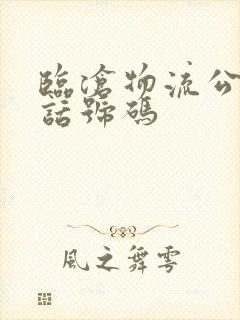 臨滄物流公
話號碼
風之舞雩